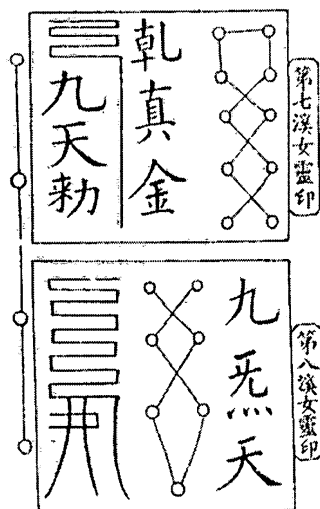 第七溪女靈印
乹真金
九天勑
第八溪女靈印
九炁天